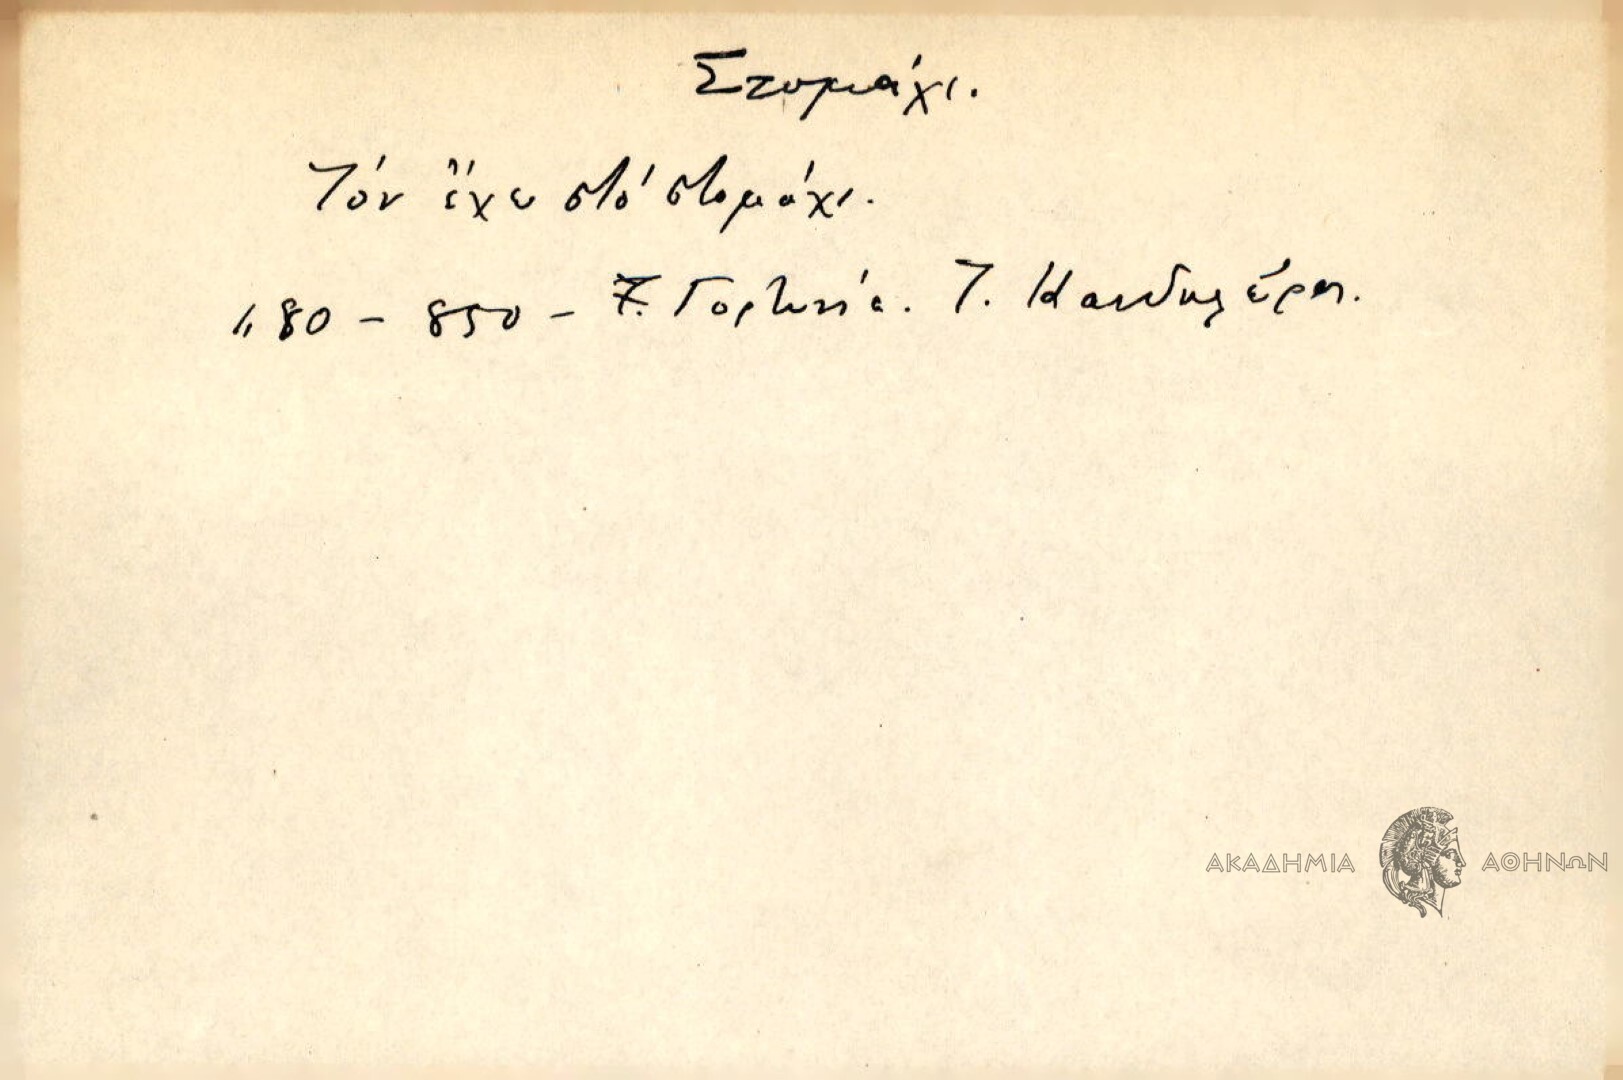 Στομάχι.
Τόν ἔχω στό στομάχι.
1180 – 850 – Γορτυνία. Τ. Κανδηλώρου.
ΑΚΑΔΗΜΙΑ ΑΘΗΝΩΝ